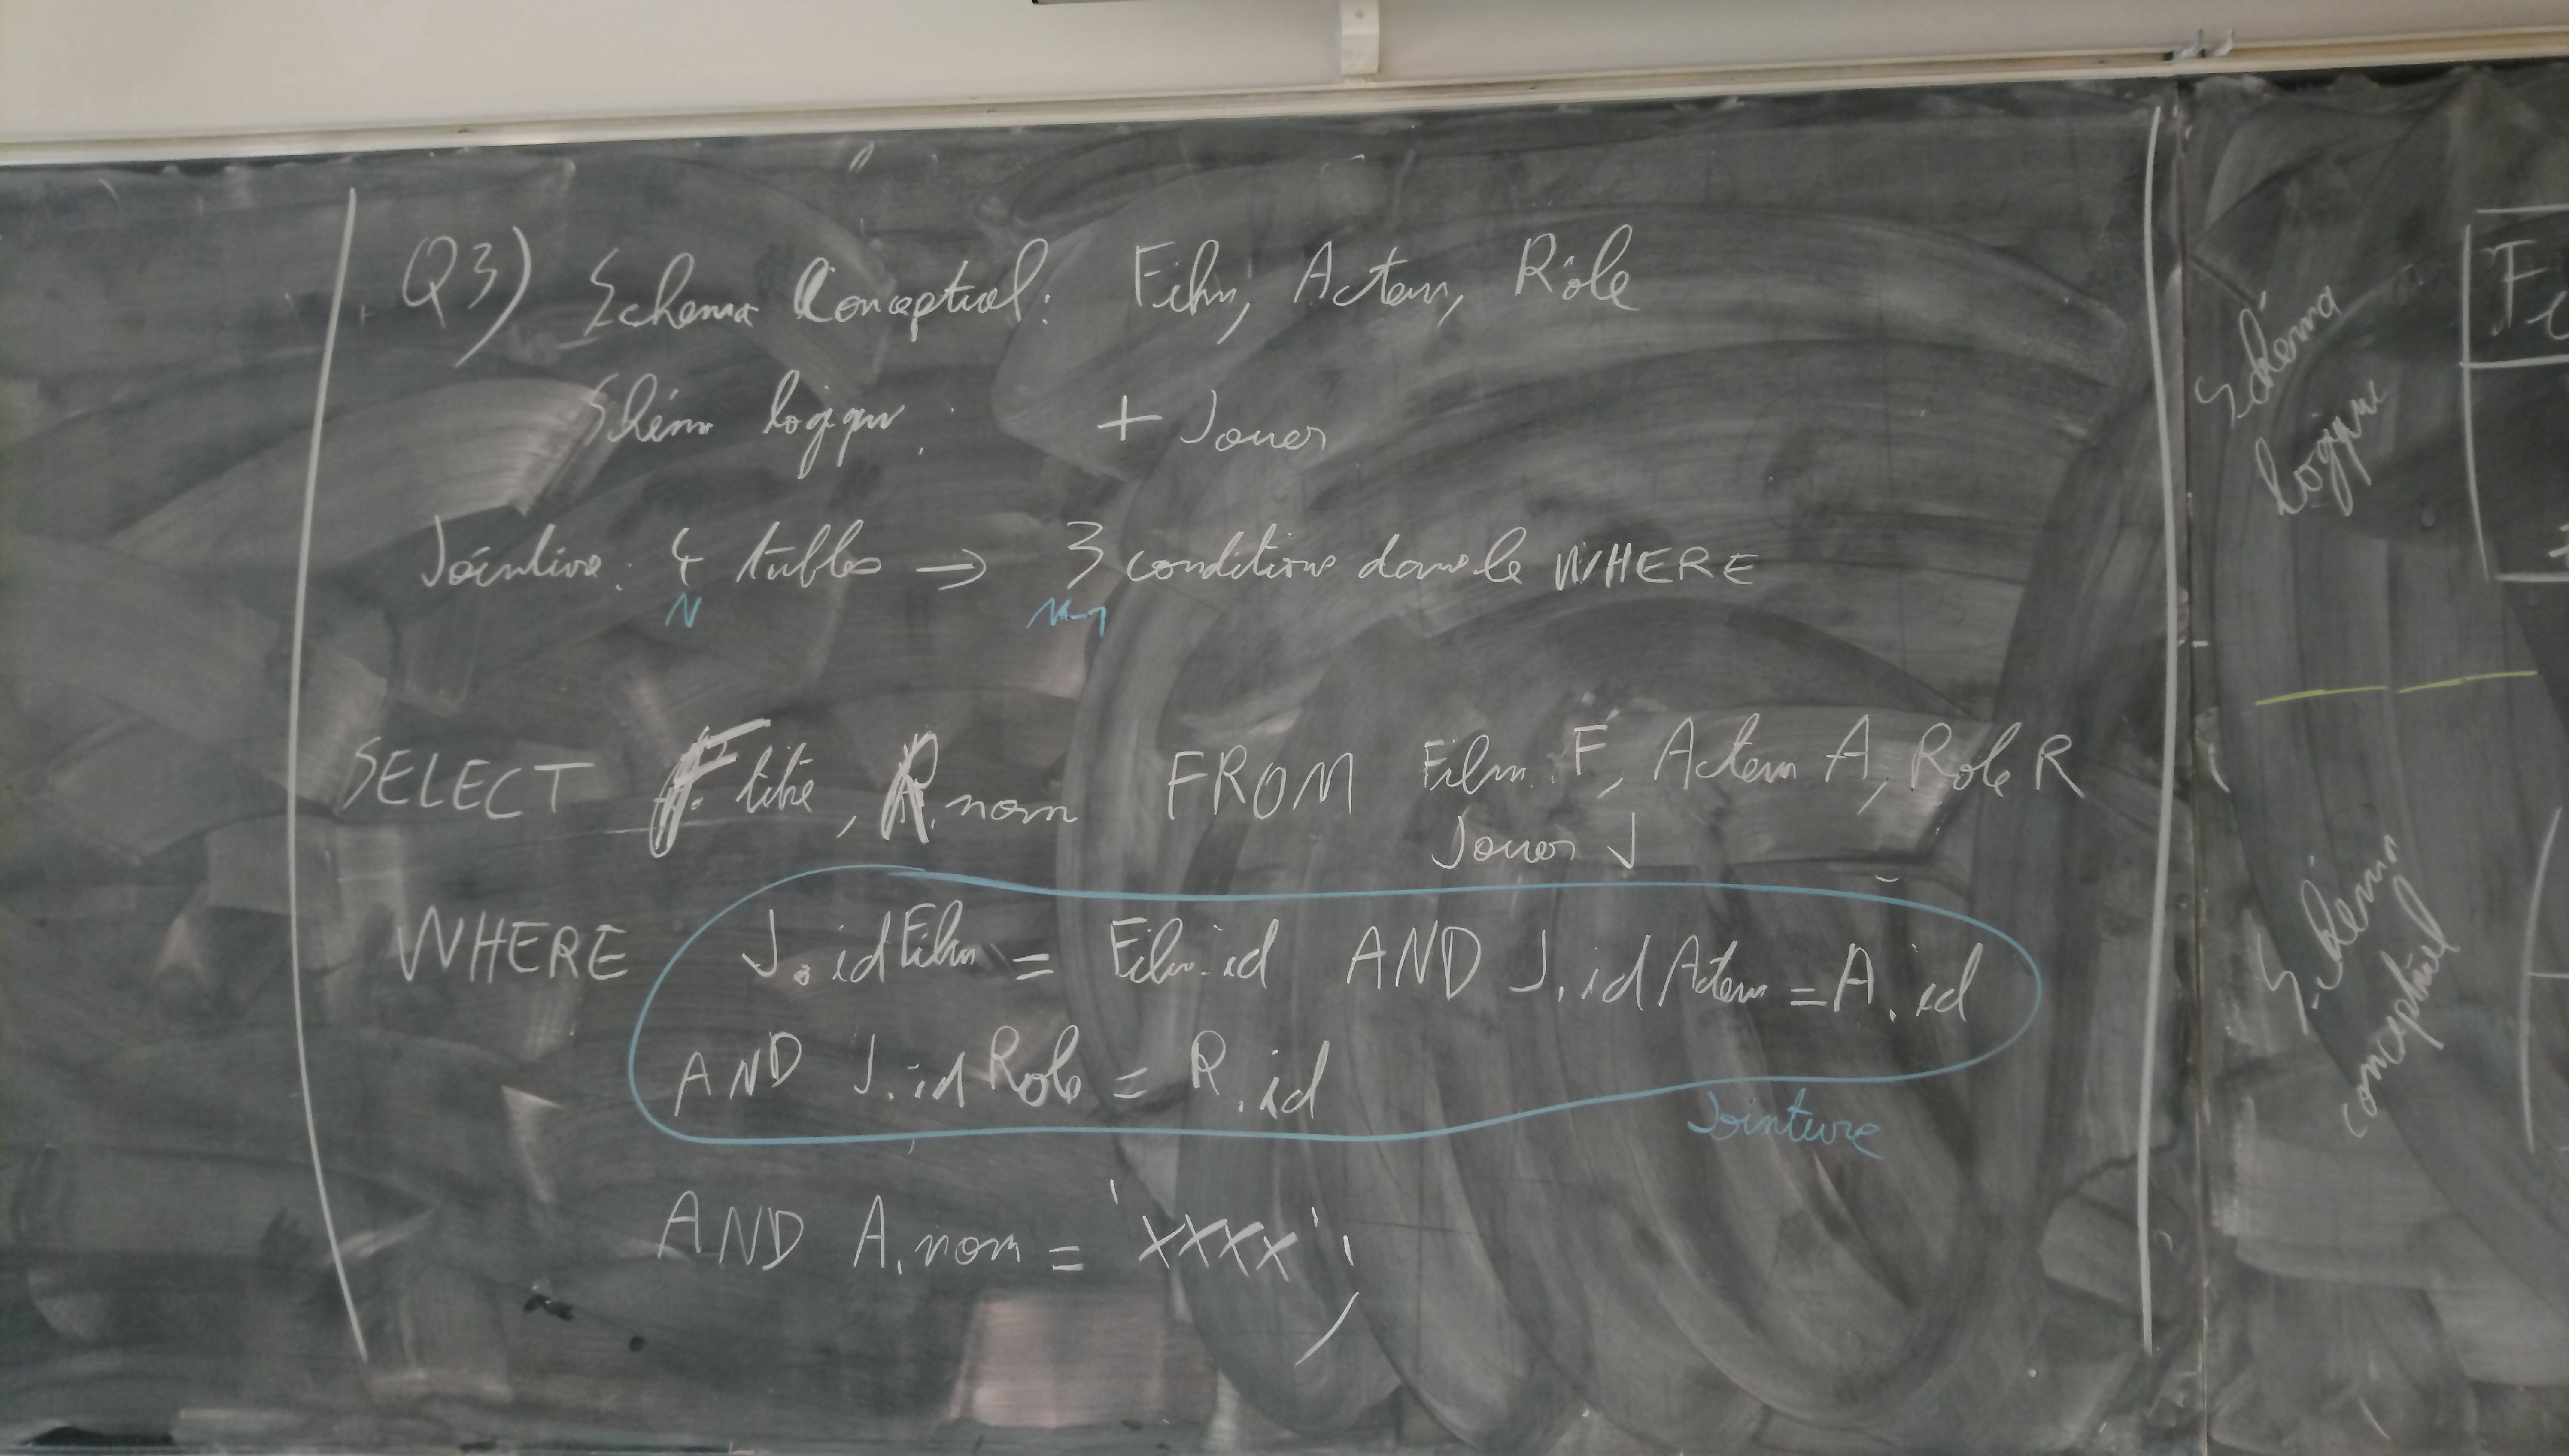 Q3) Schema Conceptuel : Film, Acteur, Rôle
Schéma logique : + Jouer
Jointure : 4 tables → 3 conditions dans le WHERE
N N-1
SELECT F.titre, R.nom FROM Film F, Acteur A, Role R
Jouer J
WHERE J.idFilm = Film.id AND J.idActeur = A.id
AND J.idRole = R.id
Jointure
AND A.nom = 'xxxx' ;
Schéma
logique
Schéma
conceptuel